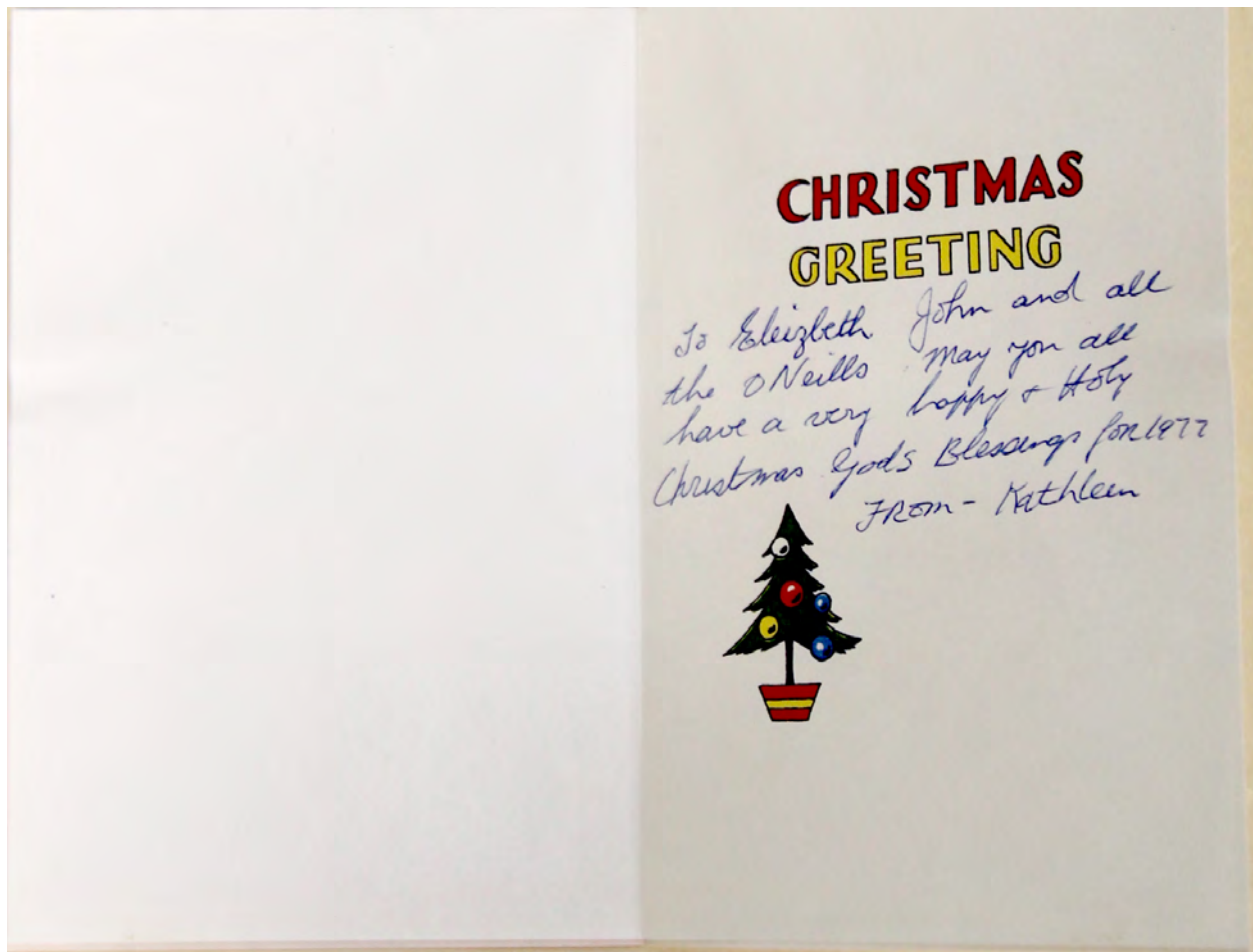 CHRISTMAS
GREETING
To Eleizbeth John and all
the ONeills May you all
have a very happy + Holy
Christmas Gods Blessings for 1977
FROM - Kathleen